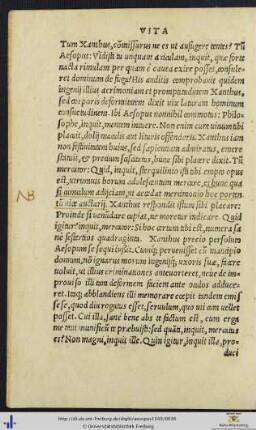 VITA
Tum Xanthus, cōmissurus ne es ut aufugere tentes? Tū
Aesopus: Vidisti tu unquam auiculam, inquit, quæ forte
nacta rimulam per quam è cauea exire posset, consule-
ret dominum de fuga? His auditis comprobauit quidem
ingenij illius acrimoniam et promptitudinem Xanthus,
sed corporis deformitatem dixit uix laturam hominum
consuetudinem. Ibi Aesopus nonnihil commotus: Philoso-
phe, inquit, memini intueri. Non enim cum uinum tibi
placuit, dolij maculis aut lituris offenderis. Xanthus iam
non festiuitatem huius, sed sapientiam admiratus, emere
statuit, et
mercator: Quid, inquit, sterquilinio isti tibi emptio opus
est, utrumuis horum adolescentum mercare, et hunc qua
si cumulum adijciam, ut accedat mercimonio hoc porten
NB
tū uice auctarij. Xanthus respondit istum sibi placere:
Proinde si uenūdare cupias, ne moretur indicare. Quid
igitur? inquit, mercator: Si hoc certum tibi est, numera sa
nè sestertios quadraginta. Xanthus precio persoluto
Aesopum se sequi iussit. Cunq; peruenisset cū mancipio
domum, nō ignarus morum ingenijq; uxoris suæ, fratre
uoluit, ut illius criminationes anteuorteret, neue de im-
prouiso illi tam deformem faciem ante oculos adduce-
ret. Itaq; abblandiens illi memorare cœpit tandem emis
se se, quod diu optatus esset, seruulum, quo uti eam uellet
posset. Cui illa, sanè bene abs te factum est, cum erga
me mui munificū te præbuisti: sed quāti, inquit, mercatus
es? Non magni, inquit ille. Quin igitur, inquit illa, pro-
duci
http://dl.ub.uni-freiburg.de/diglit/aesopus1549/0036
© Universitätsbibliothek Freiburg